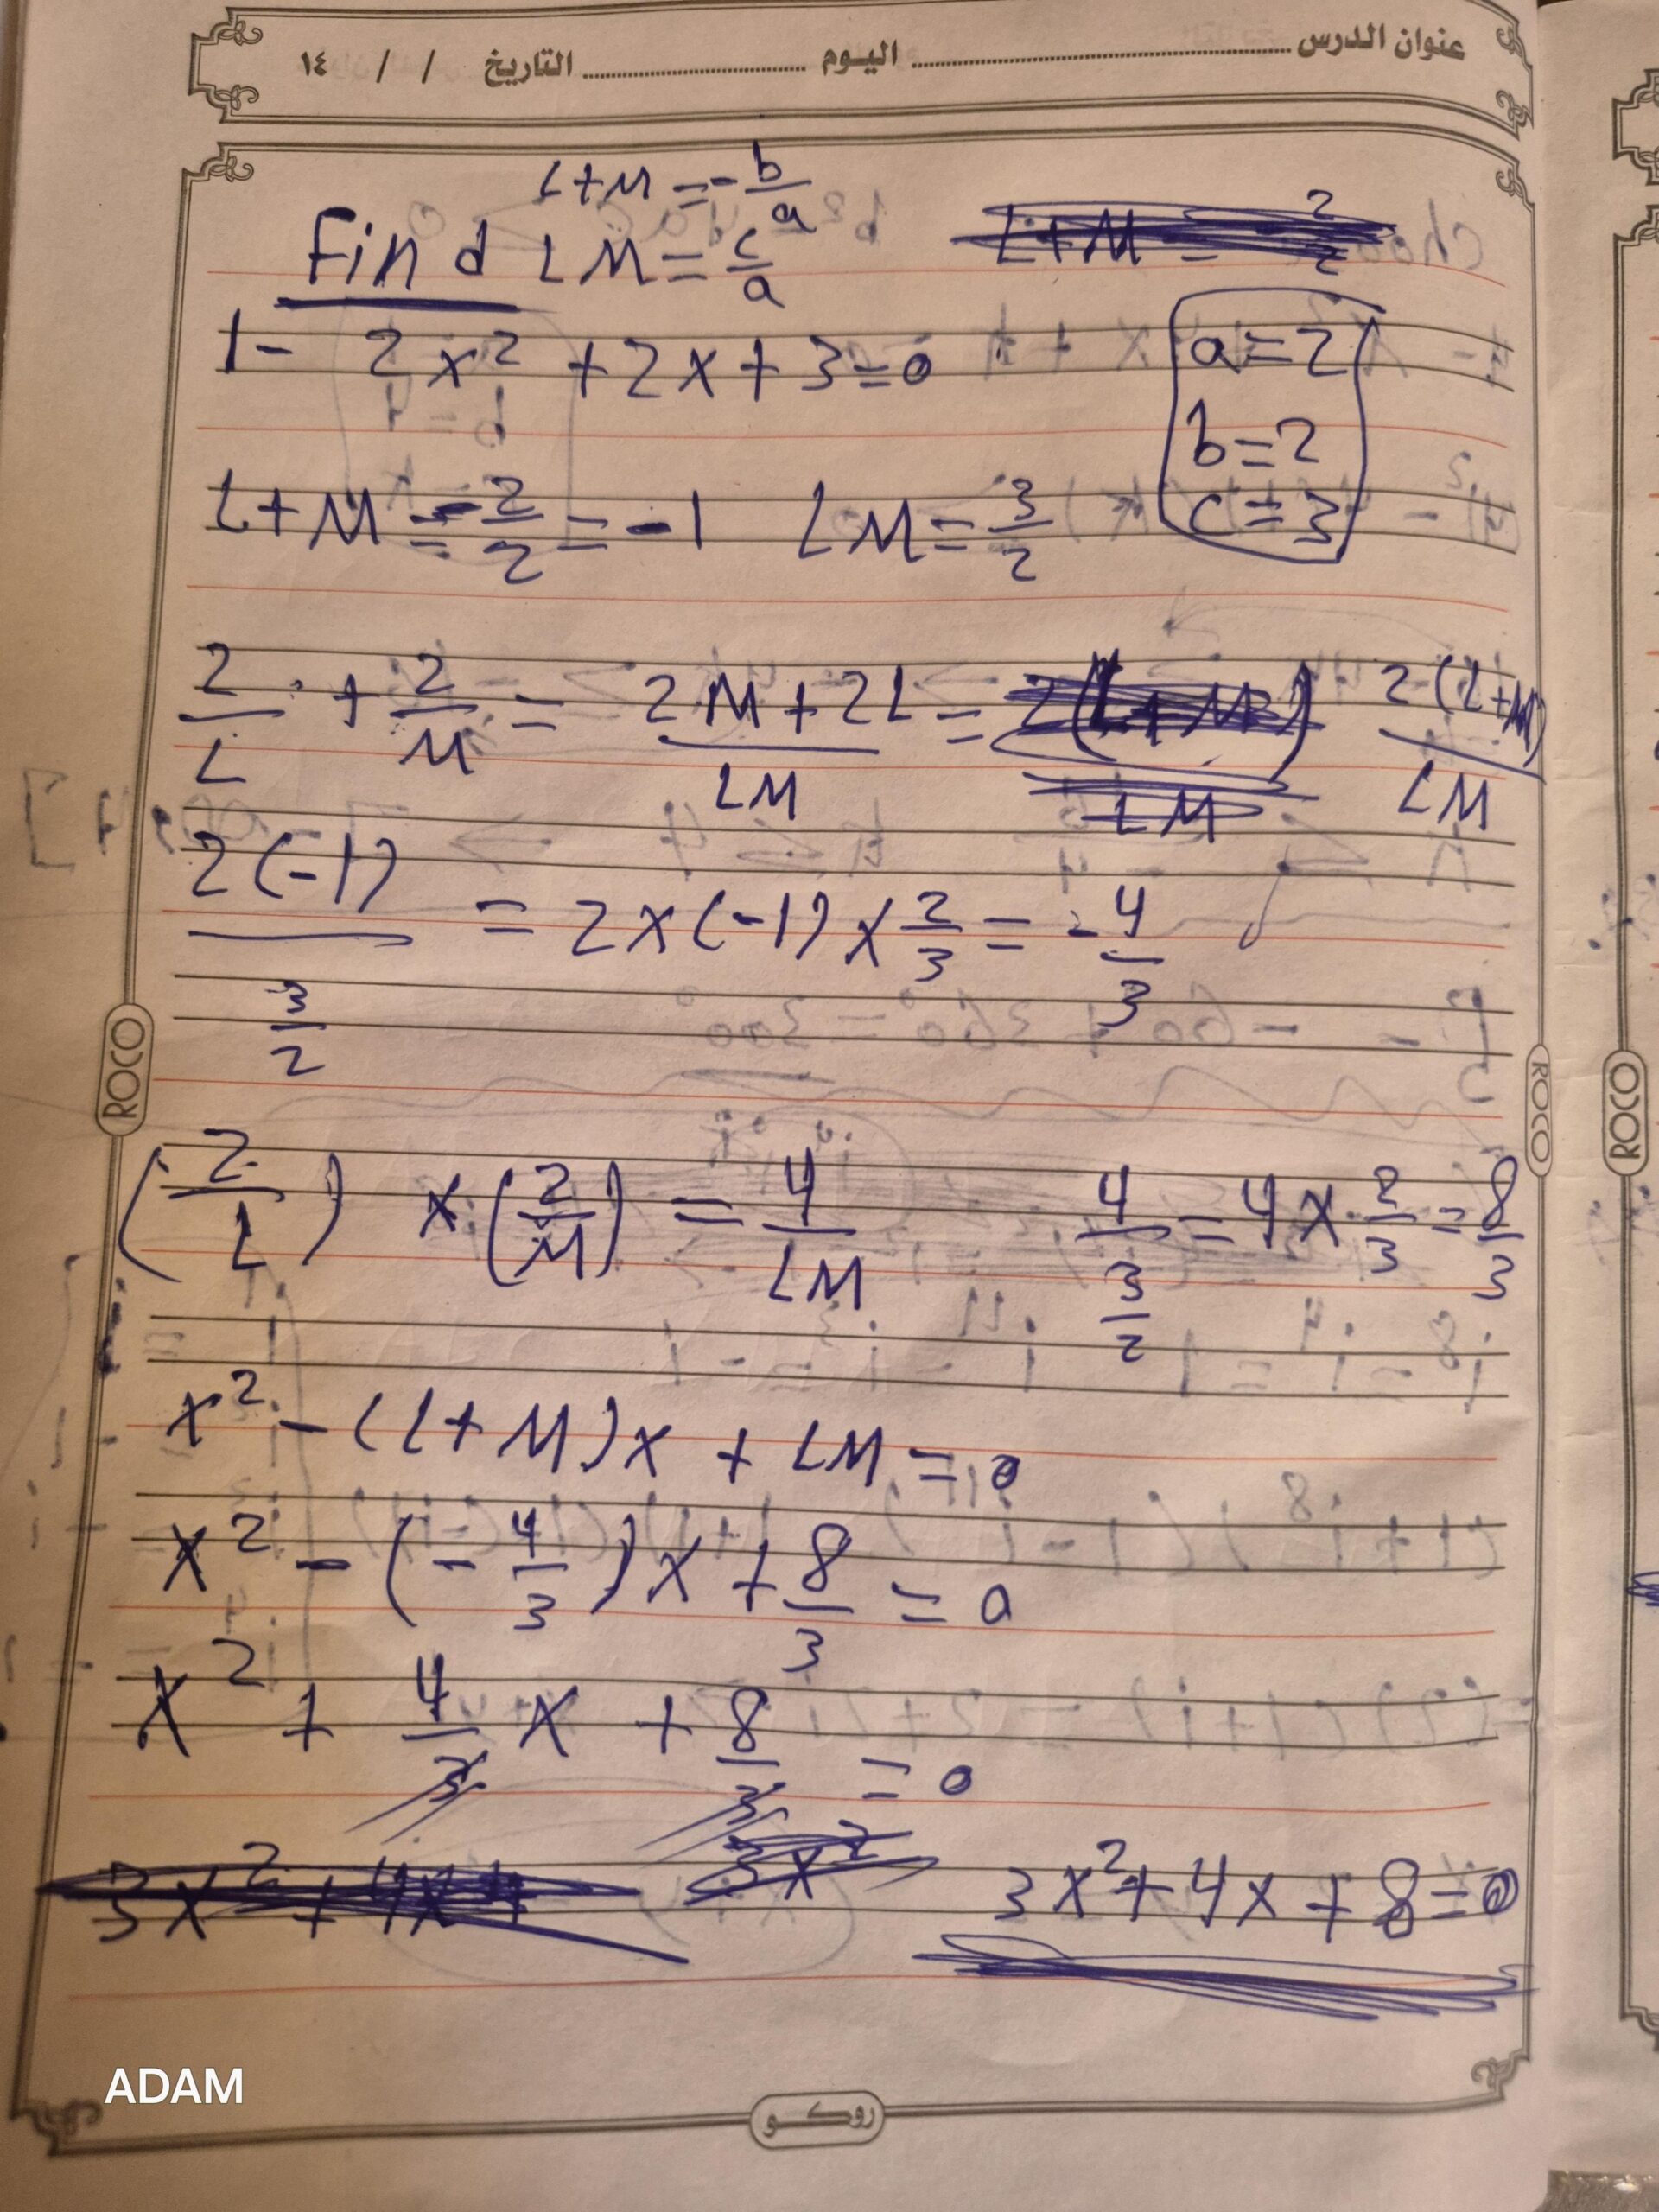 عنوان الدرس ........ اليوم ........ التاريخ / / ١٤
L+M = -b/a
Find LM = c/a
1- 2x² + 2x + 3 = 0
a = 2
b = 2
c = 3
L+M = -2/2 = -1 LM = 3/2
2/L + 2/M = (2M + 2L)/LM = 2(L+M)/LM
2(-1)/(3/2) = 2 × (-1) × 2/3 = -4/3
(2/L) × (2/M) = 4/LM 4/(3/2) = 4 × 2/3 = 8/3
x² - (L+M)x + LM = 0
x² - (-4/3)x + 8/3 = 0
x² + 4/3 x + 8/3 = 0
3x² + 4x + 8 = 0
ROCO
ROCO
ROCO
ADAM
روكو